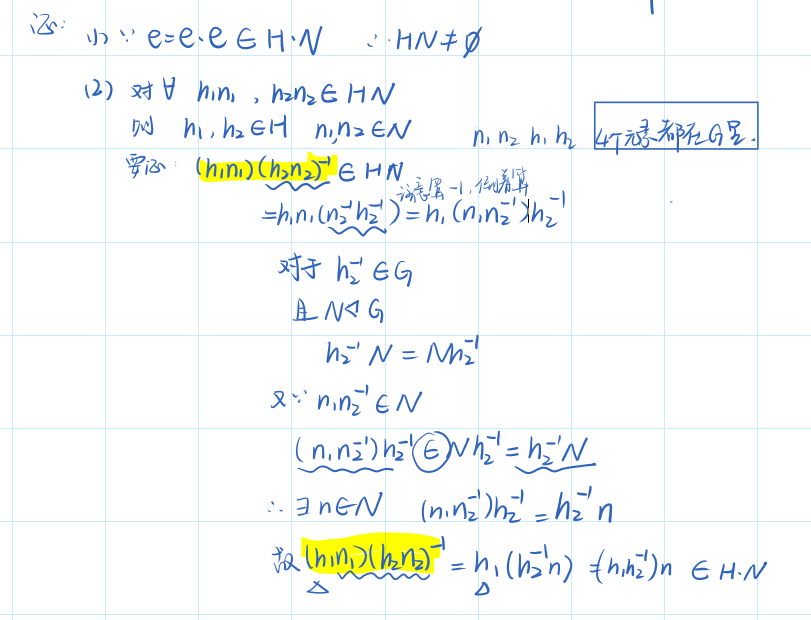 证: (1) ∵ e=e·e∈H·N ∴ HN≠∅
(2) 对∀ h₁n₁, h₂n₂∈HN
则 h₁,h₂∈H n₁,n₂∈N n₁ n₂ h₁ h₂ 4个元素都在G里.
要证: (h₁n₁)(h₂n₂)⁻¹∈HN
注意算-1,倒着算
=h₁n₁(n₂⁻¹h₂⁻¹)=h₁(n₁n₂⁻¹)h₂⁻¹
对于 h₂⁻¹∈G
且 N◁G
h₂⁻¹N=Nh₂⁻¹
又∵ n₁n₂⁻¹∈N
(n₁n₂⁻¹)h₂⁻¹∈Nh₂⁻¹=h₂⁻¹N
∴ ∃n∈N (n₁n₂⁻¹)h₂⁻¹=h₂⁻¹n
故 (h₁n₁)(h₂n₂)⁻¹=h₁(h₂⁻¹n)=(h₁h₂⁻¹)n ∈H·N